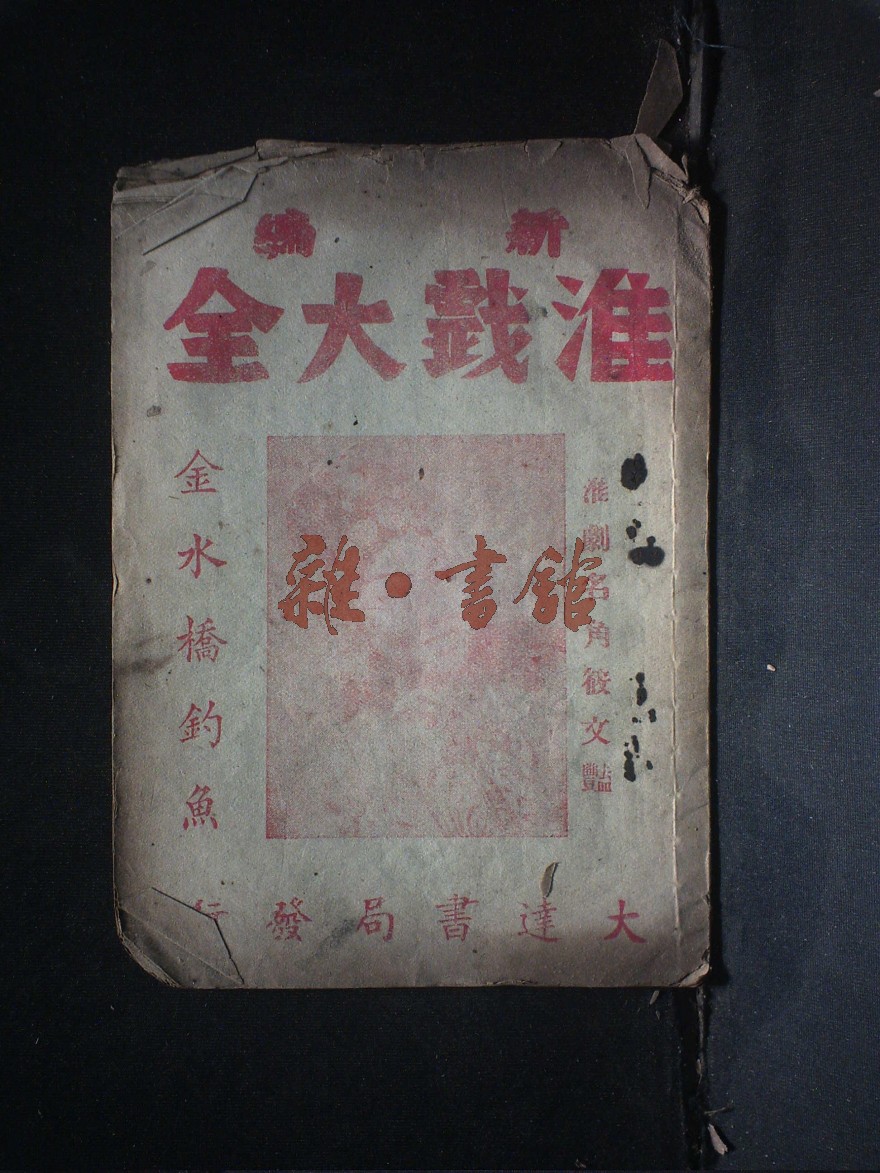 新編
淮戲大全
淮劇名角筱文艷
金水橋釣魚
大達書局發行
雜·書館